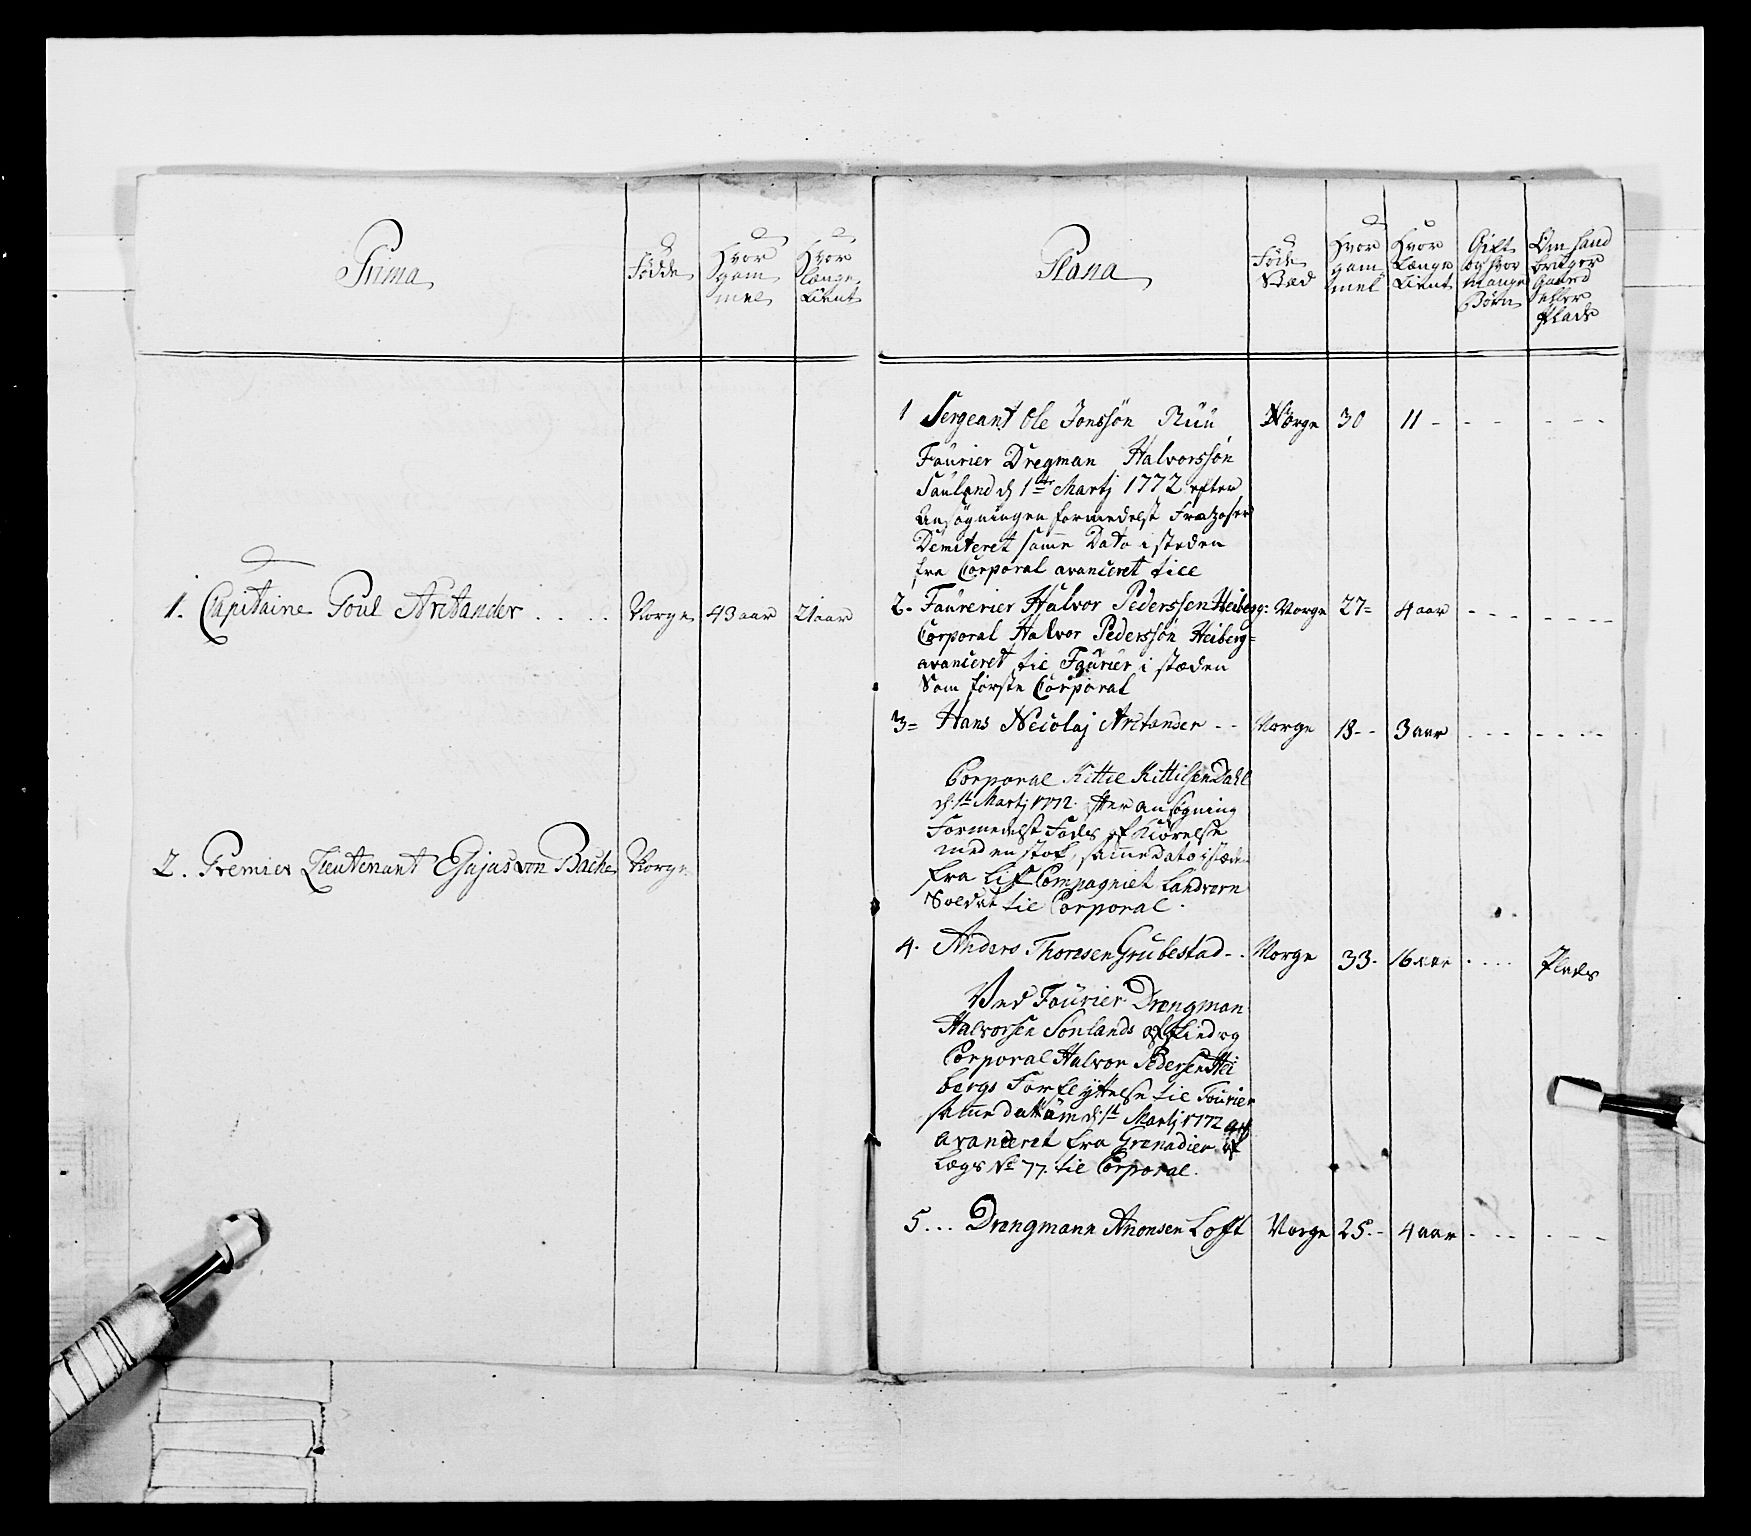 Prima
Födde
Hvor
gam
mel
Hvor
længe
tient
1. Capitaine Poul Arctander . . . . Norge 43 aar 21 aar
2. Premier Lieutenant Esajas von Bache Norge
Plana
Föde
Stæd
Hvor
gam
mel
Hvor
længe
tient
Gift
og hvor
mange
Börn
Om hand
bruger
Gaard
eller
Plads
1 Sergeant Ole Jonssön Ruu Norge 30 11 - - - - - -
Faurier Dregman Halvorssön
Sauland d 1te Martj 1772 efter
Ansögningen formedelst
Demiteret samme Dato i steden
fra Corporal avanceret till
2. Faurerier Halvor Pederssen Heiberg: Norge 27= 4 aar - - - - - - -
Corporal Halvor Pederssön Heiberg=
avanceret til Faurier i stæden
Som förste Corporal
3= Hans Necolaj Arctander - - Norge 18 - - 3 aar - - - - - - -
Corporal Kittil Kittilsen Dahl
d. 1te Martj 1772. efter ansögning
Formedelst Fods af Kiörelse
med en stok, samme dato i stæden
fra Lif Compagniet Landvern
Soldat til Corporal.
4. Anders Thoresen Grubestad - . Norge 33. 16 aar . . . . Plads
Ved Faurier Drengman
Halvorsen Sönlands afskied og
Corporal Halvor Pedersen Hei
bergs Forflyttelse til Fourier
samme datum d. 1te Martj 1772
avanceret fra Grenadier af
Lægs No 77. til Corporal.
5 ... Drengmann Anonsen Loft Norge 25. - 4 aar - - - - - - -